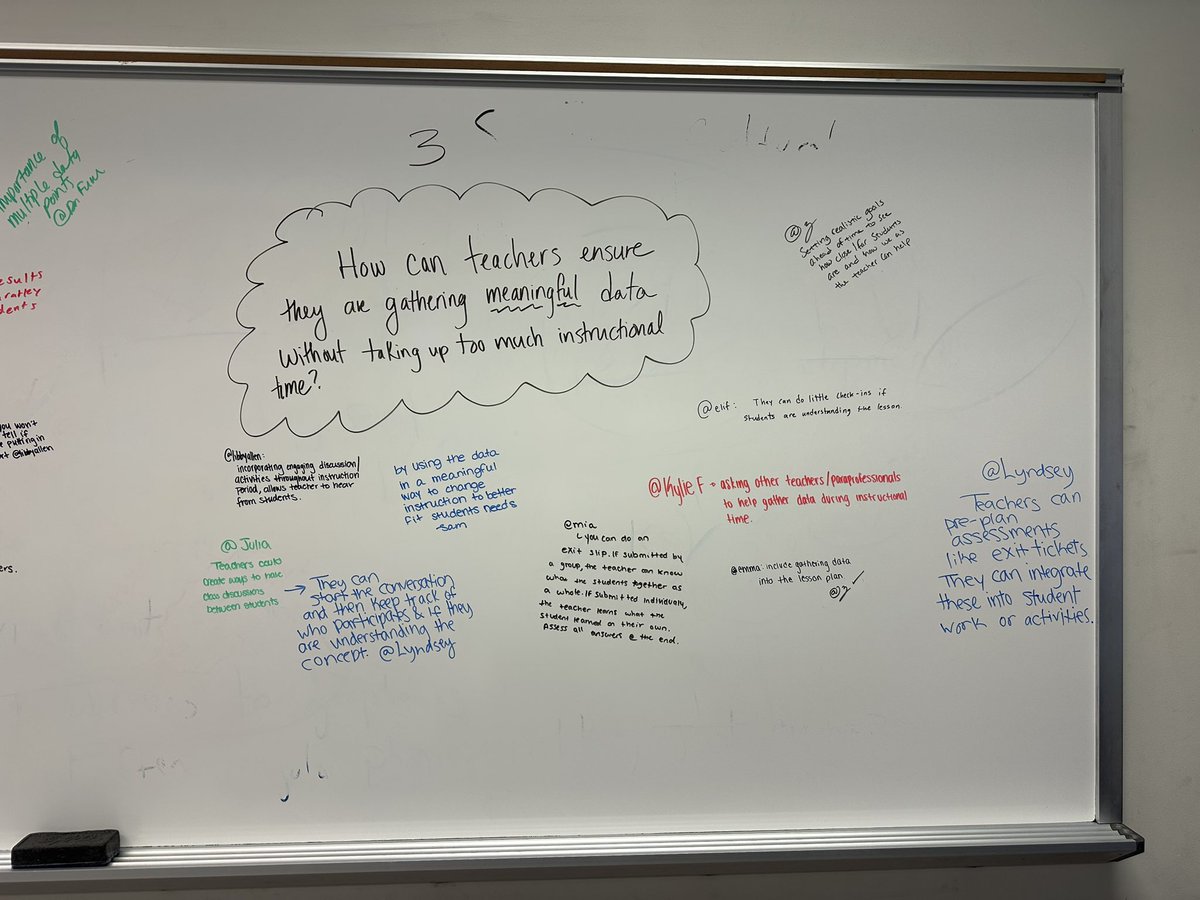 importance of
multiple data
points
@Dr. Funk
esults
dents
you won't
tell if
e putting in
@libbyallen
ers.
3
How can teachers ensure
they are gathering meaningful data
without taking up too much instructional
time?
@z
Setting realistic goals
ahead of time to see
how close/far students
are and how we as
the teacher can help
@elif: They can do little check-ins if
students are understanding the lesson.
@libbyallen:
incorporating engaging discussion/
activities throughout instruction
period, allows teacher to hear
from students.
by using the data
in a meaningful
way to change
instruction to better
fit students needs
-Sam
@Kylie F - asking other teachers/paraprofessionals
to help gather data during instructional
time.
@Lyndsey
Teachers can
pre-plan
assessments
like exit-tickets
They can integrate
these into student
work or activities.
@mia
↳ you can do an
exit slip. If submitted by
a group, the teacher can know
what the students together as
a whole. If submitted individually,
the teacher learns what the
student learned on their own.
Assess all answers @ the end.
@emma: include gathering data
into the lesson plan
@z ✓
@Julia
Teachers could
create ways to have
class discussions
between students
→ They can
start the conversation
and then keep track of
who participates & if they
are understanding the
concept. @Lyndsey